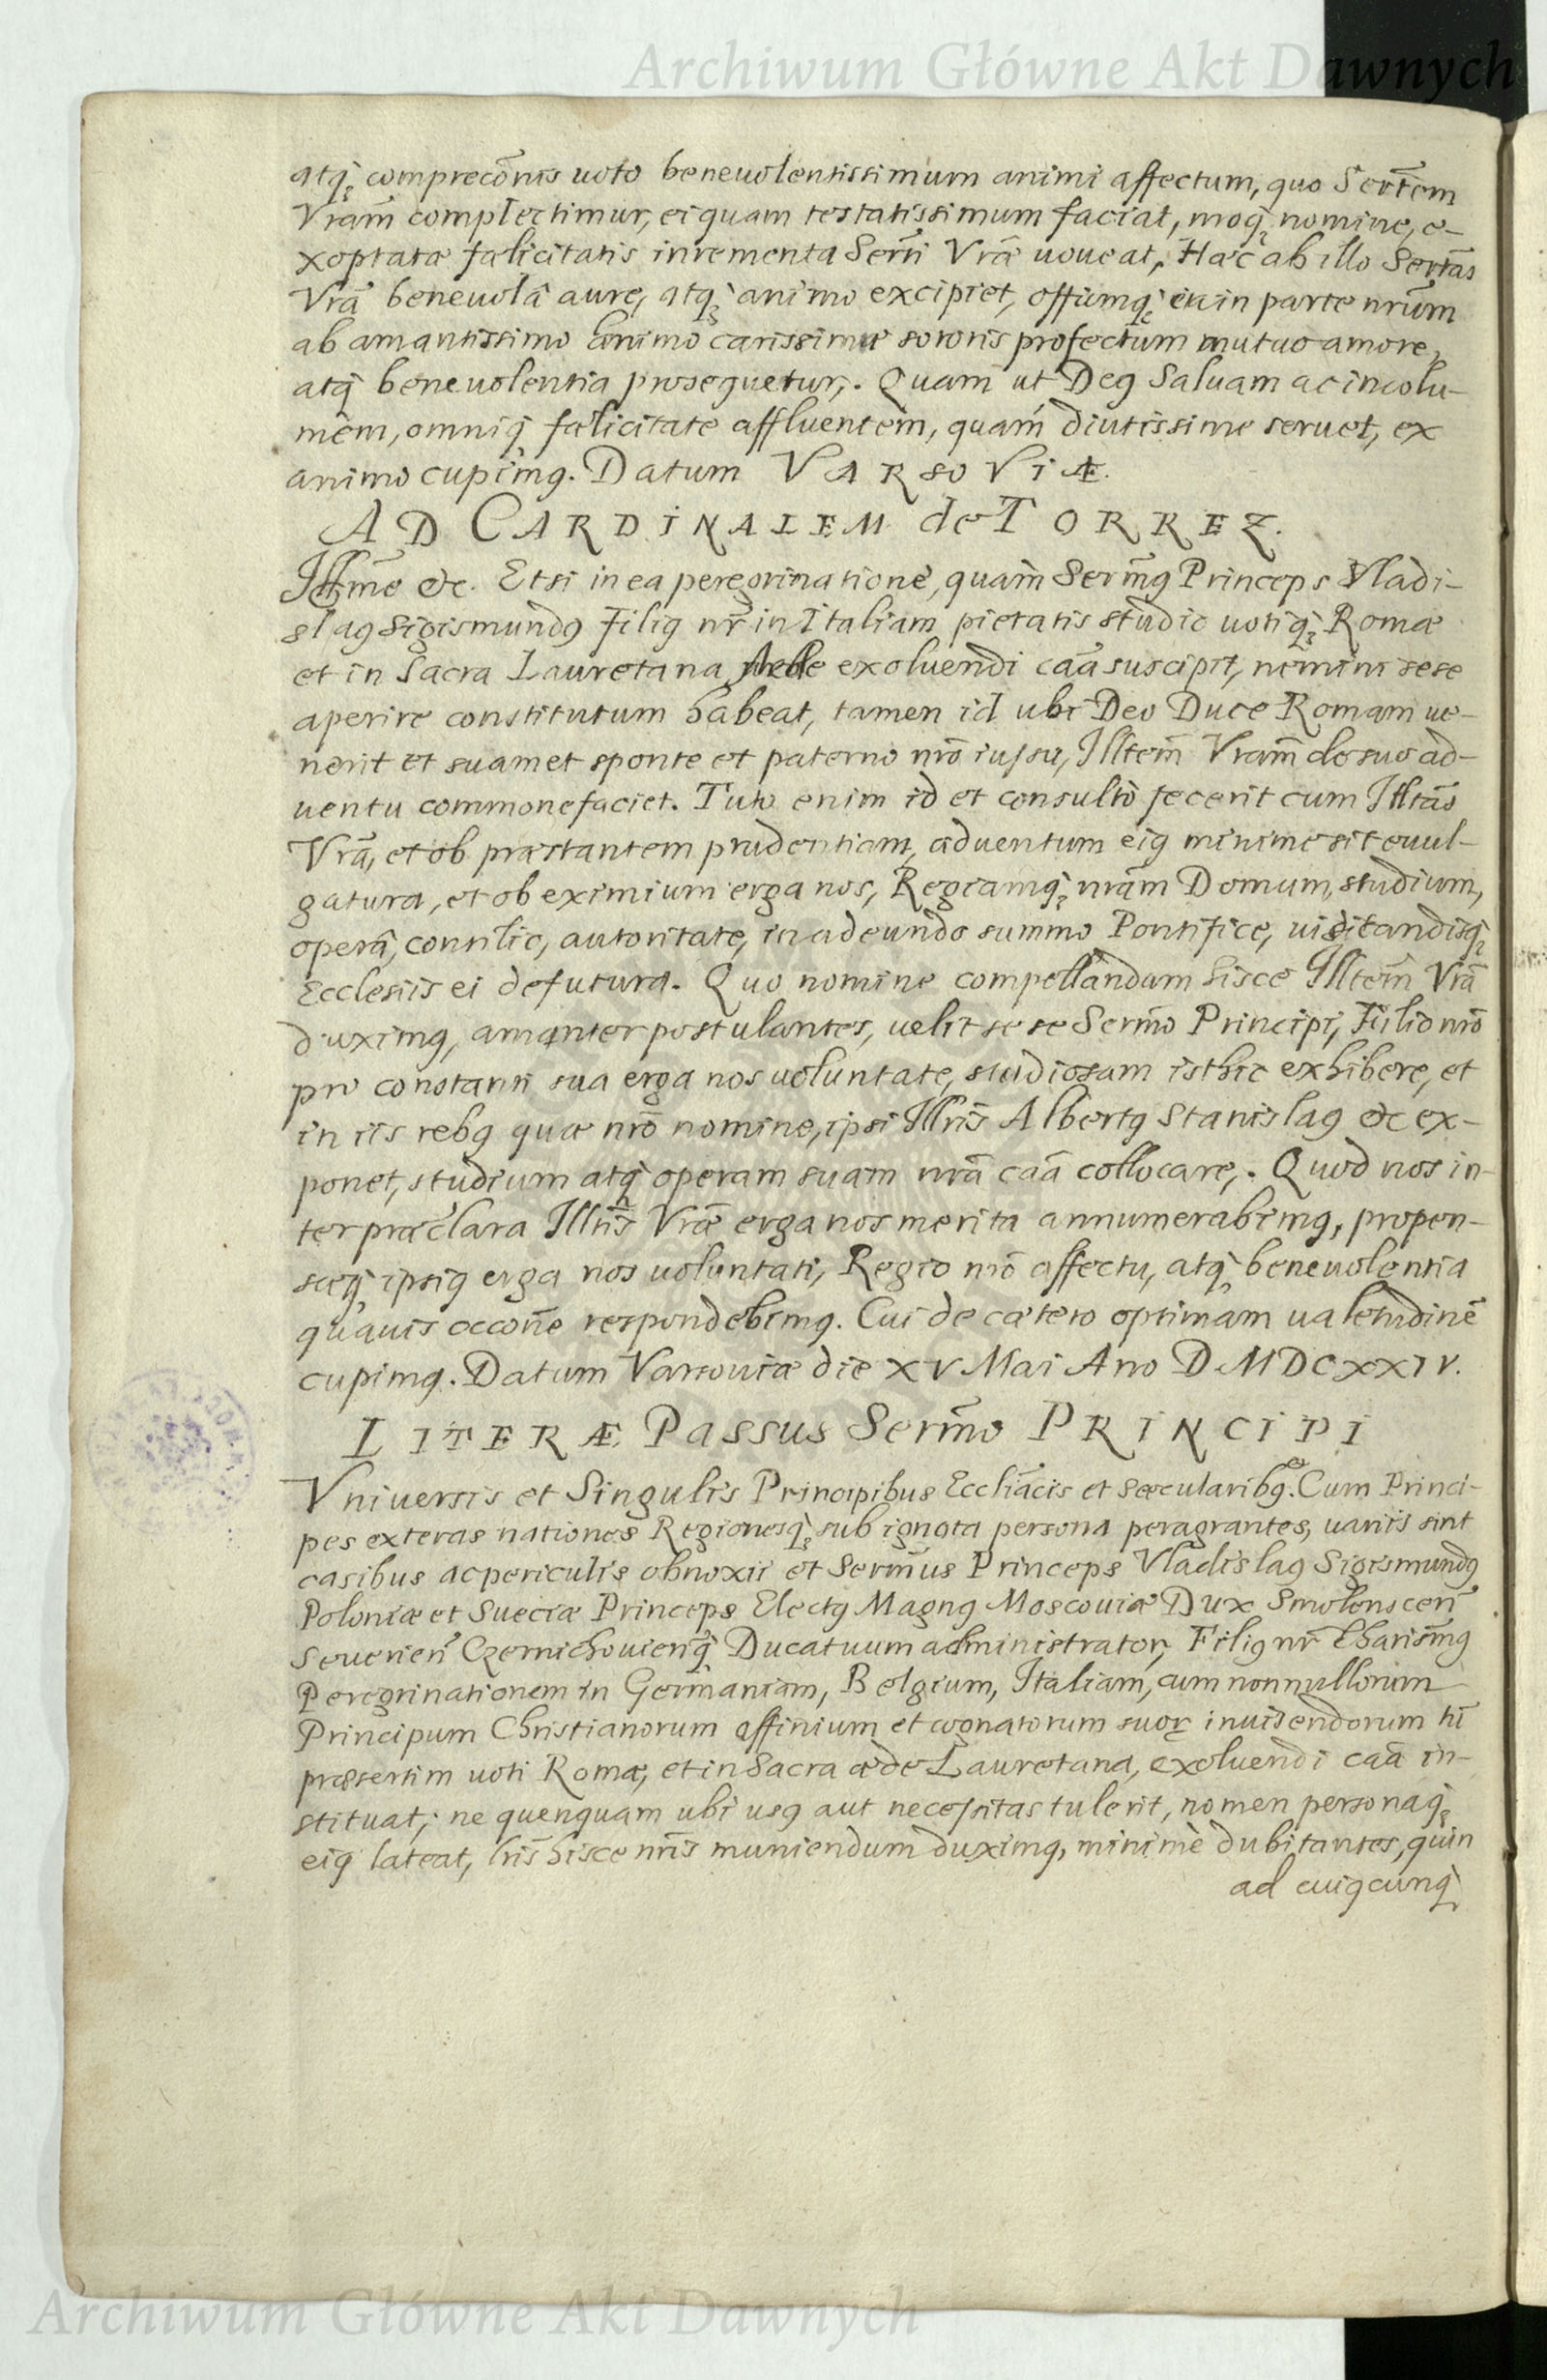 Archiwum Główne Akt Dawnych
atqꝫ comprecõnis uoto beneuolentissimum animi affectum, quo Sertẽm
Vram̃ complectimur, ei quam testatissimum faciat, nr̃oqꝫ nomine, e-
xoptatæ fælicitatis inrementa Serti Vræ̃ uoueat. Hæc ab illo Sertas̃
Vrã beneuolâ aure, atqꝫ animo excipiet, offiumqꝫ ea in parte nrũm
ab amantissimo animo carissimæ sororis profectum mutuo amore,
atqꝫ beneuolentia prosequetur. Quam ut Deꝯ Saluam ac incolu-
mem, omniqꝫ fælicitate affluentem, quam diutissime seruet, ex
animo cupimꝯ. Datum VARSOVIÆ.
AD CARDINALEM de TORREZ.
Illme͂ &c. Etsi in ea peregrinatione, quam Serm͂ꝯ Princeps Vladi-
slaꝯ Sigismundꝯ Filiꝯ nr͂ in Italiam pietatis studio uotiqꝫ Romæ
et in Sacra Lauretana Aede exoluendi caã suscipit, nemini sese
aperire constitutum habeat, tamen id ubi Deo Duce Romam ue-
nerit et suamet sponte et paterno nrõ iussu, Illtem͂ Vram͂ de suo ad-
uentu commonefaciet. Tuto enim id et consultò fecerit cum Illtas͂
Vrã, et ob præstantem prudentiam, aduentum eiꝯ minime sit euul-
gatura, et ob eximium erga nos, Regiamqꝫ nrãm Domum, studium,
operâ, consilio, autoritate, in adeundo summo Pontifice, uisitandisqꝫ
Ecclesiis ei defutura. Quo nomine compellandam hisce Illtem͂ Vrã
duximꝯ, amanter postulantes, uelit sese Sermõ Principi, Filio nrõ
pro constanti sua erga nos uoluntate, studiosam isthic exhibere, et
in iis rebꝯ quæ nrõ nomine, ipsi Illris͂ Albertꝯ Stanislaꝯ &c ex-
ponet, studium atqꝫ operam suam nrã caã collocare. Quod nos in-
ter præclara Illtis͂ Vræ͂ erga nos merita annumerabimꝯ, propen-
sæqꝫ ipsiꝯ erga nos uoluntati, Regio nrõ affectu, atqꝫ beneuolentia
quauis occoñe respondebimꝯ. Cui de cætero optimam ualetudinẽ
cupimꝯ. Datum Varsouiæ die XV Mai Ano D. MDCXXIV.
LITERÆ Passus Serm͂o PRINCIPI
Vniuersis et Singulis Principibus Eccliãcis et Sæcularibꝯ &. Cum Princi-
pes exteras nationes Regionesqꝫ sub ignota persona peragrantes, uariis sint
casibus ac periculis obnoxii et Serm͂us Princeps Vladislaꝯ Sigismundꝯ
Poloniæ et Sueciæ Princeps Electꝯ Magnꝯ Moscouiæ Dux Smolenscen͂
Seuerien͂ Czernichouienqꝫ Ducatuum administrator, Filiꝯ nr͂ Charism͂ꝯ
Peregrinationem in Germaniam, Belgium, Italiam, cum nonnullorum
Principum Christianorum affinium et cognatorum suoꝝ inuisendorum tũ
præsertim uoti Romæ, et in Sacra æde Lauretana, exoluendi caã in-
stituat; ne quenquam ubi usꝯ aut necessitas tulerit, nomen personaqꝫ
eiꝯ lateat, lris͂ hisce nris͂ muniendum duximꝯ, minimè dubitantes, quin
ad cuiꝯcunqꝫ
Archiwum Główne Akt Dawnych